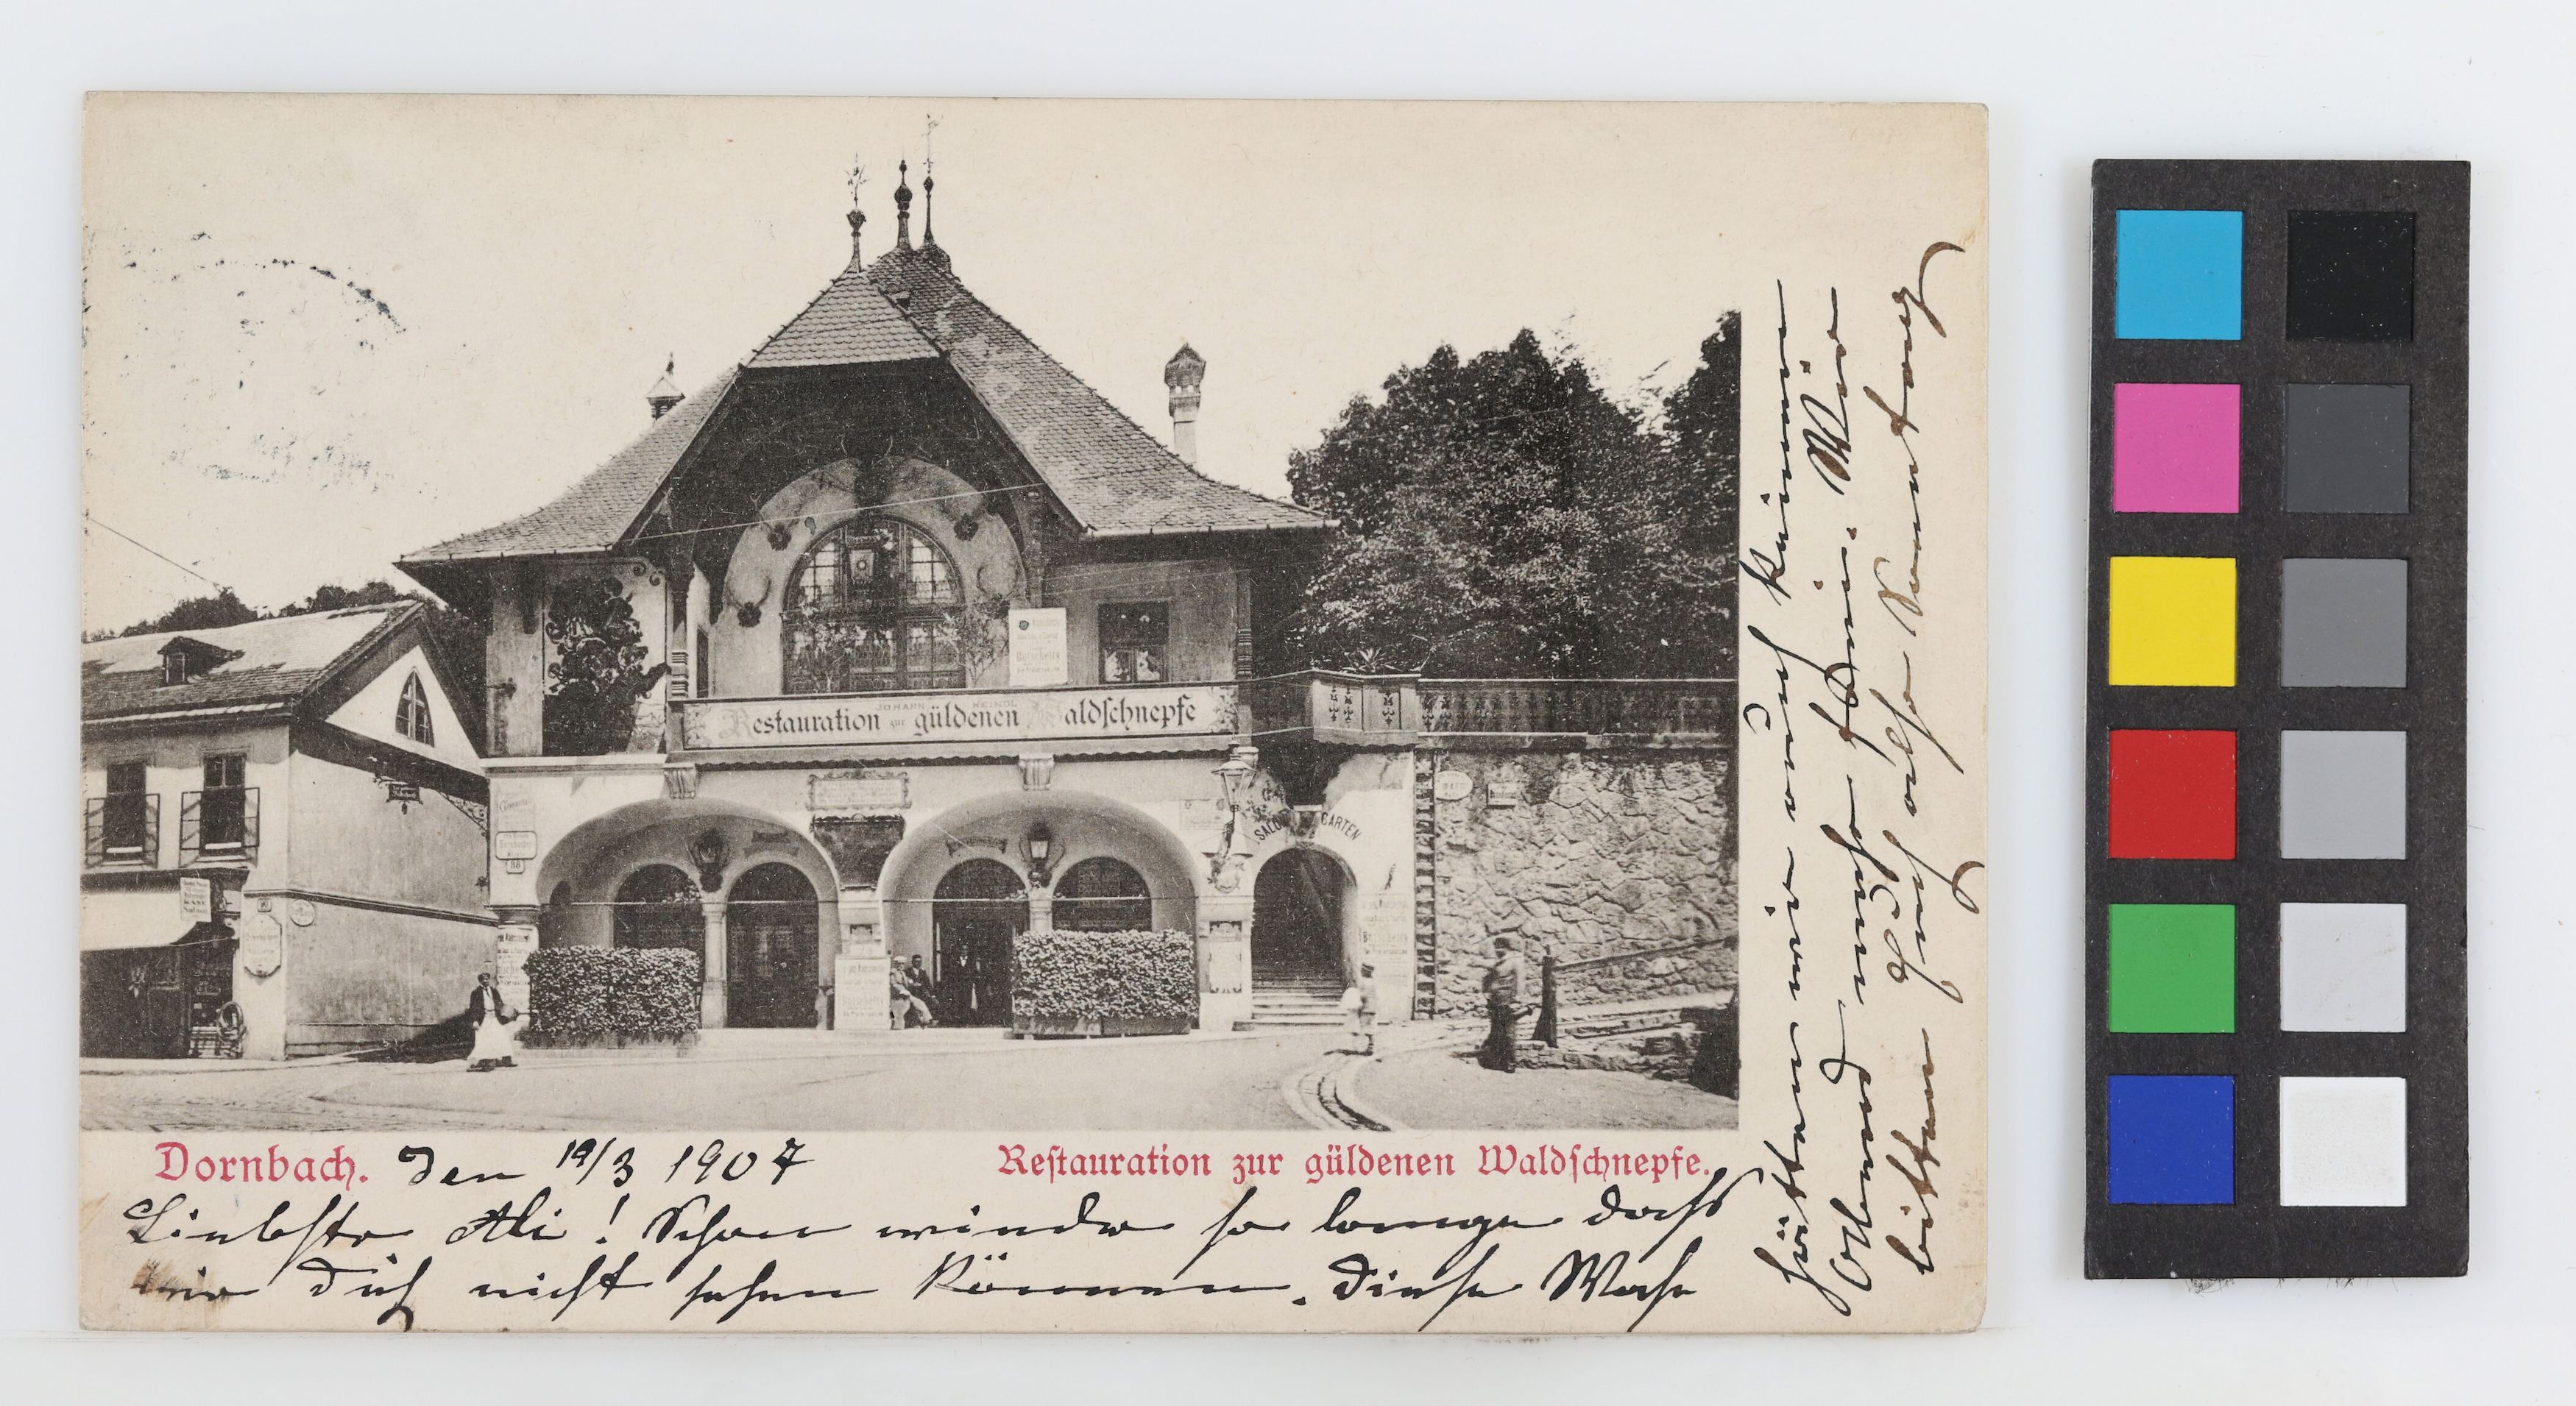 JOHANN HEINDL
Restauration zur güldenen Waldschnepfe
SALON GARTEN
88
Dornbach. Den 19/3 1907
Restauration zur güldenen Waldschnepfe.
Liebste Ali! Schon wieder so lange dass
wir Dich nicht sehen können. Diese Woche
hätten wir auch keinen
Abend mehr frei. Wir
bitten Dich also Sonntag